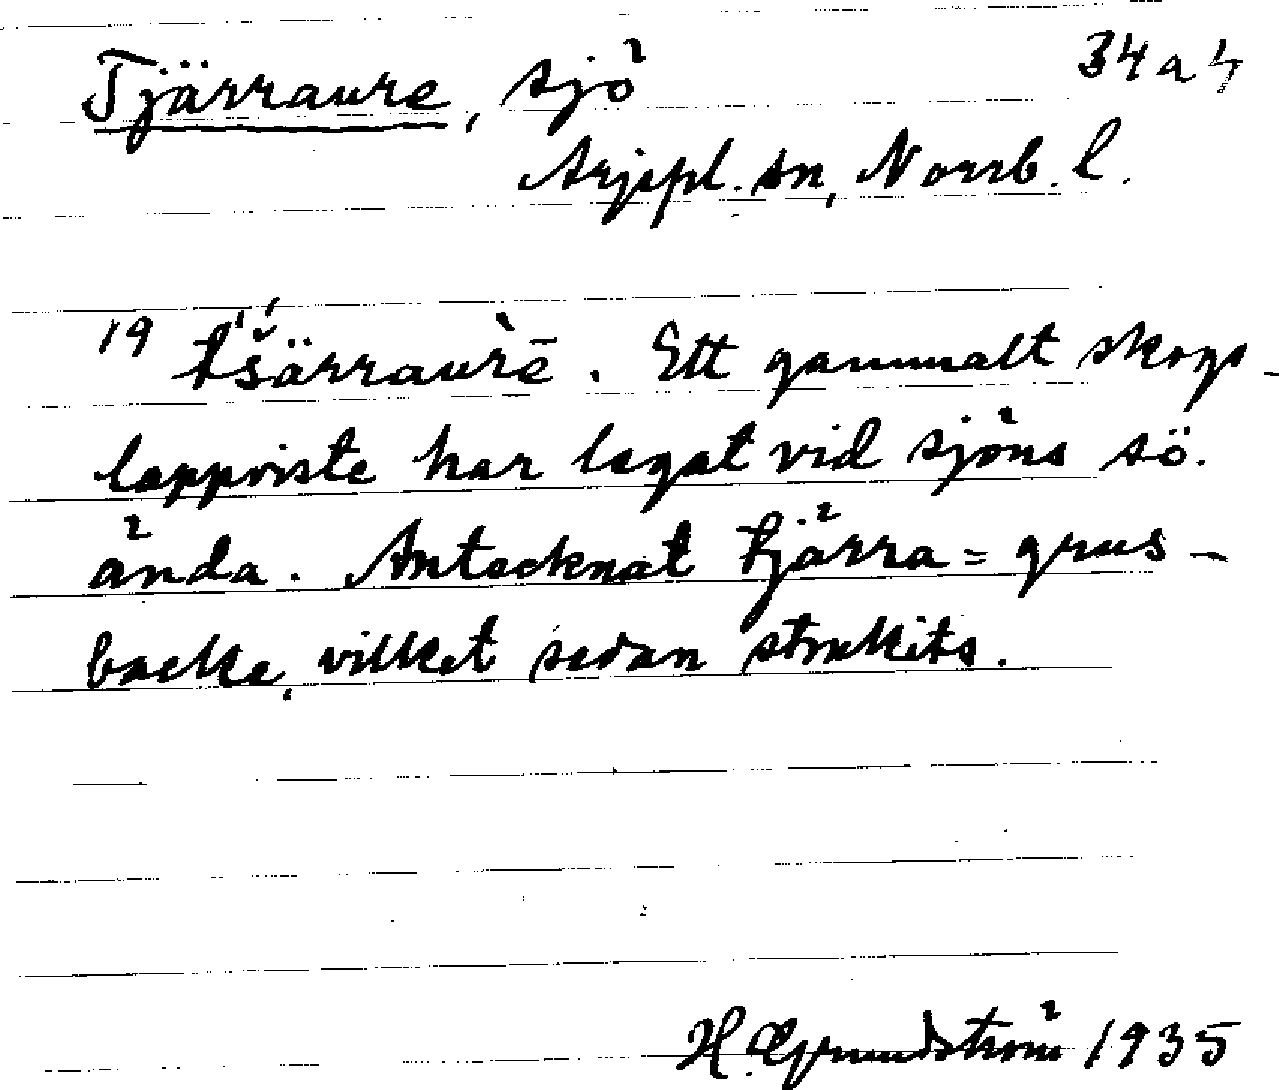 Tjärraure, sjö 34 a 4
Arjepl. sn, Norrb. l.
19 tšärraurē. Ett gammalt skogs-
lappviste har legat vid sjöns sö.
ända. Antecknat tjärra = grus-
backe, vilket sedan strukits.
H. Grundström 1935